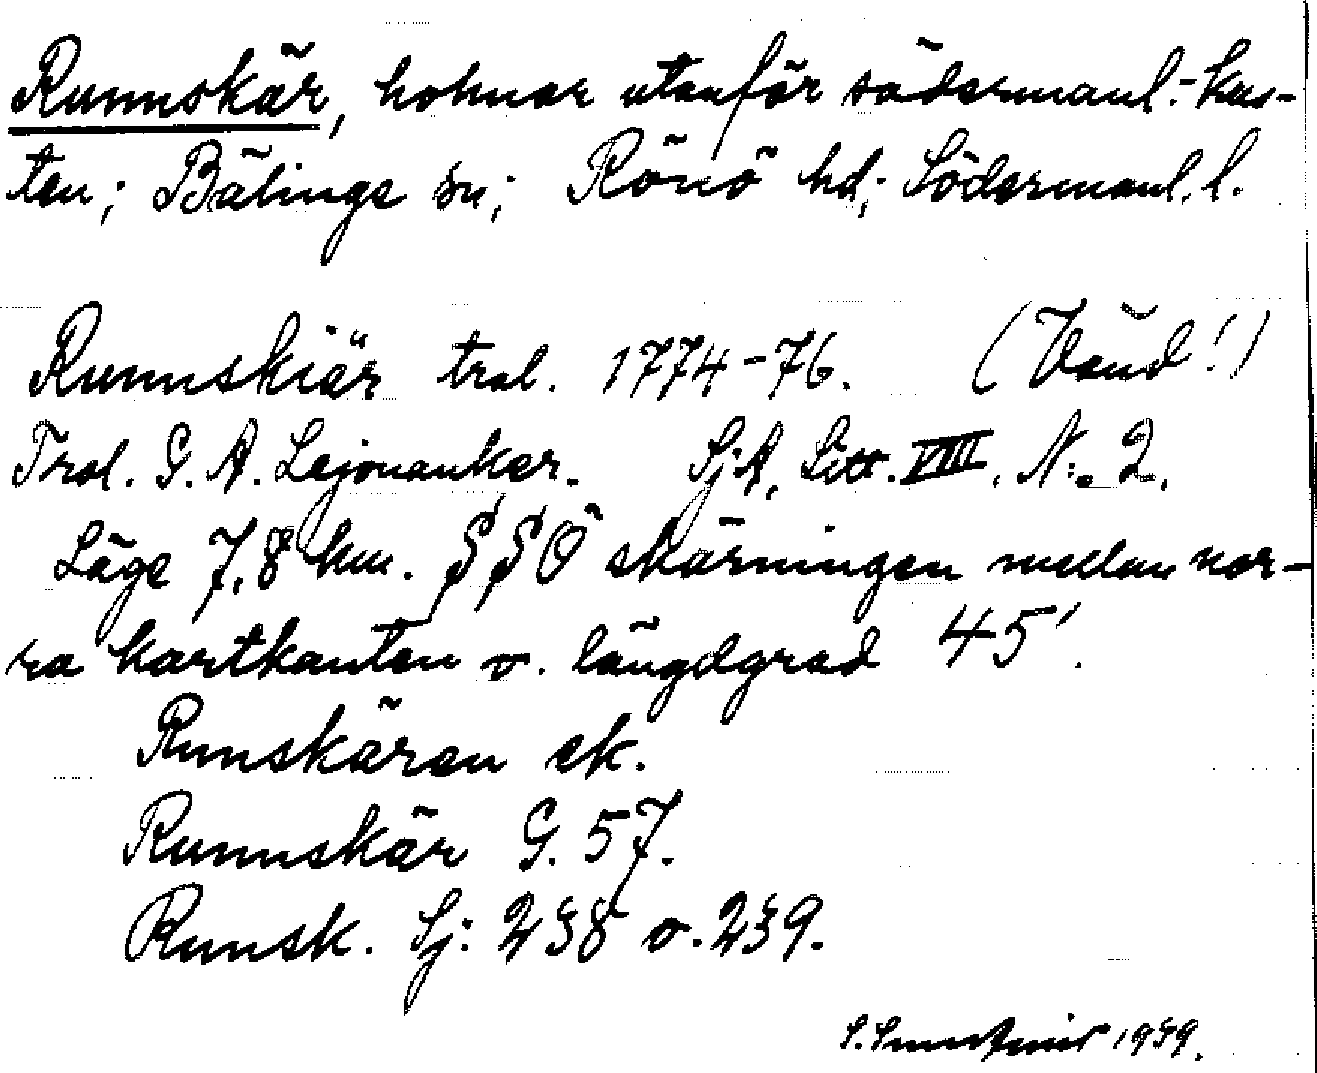 Runnskär, holmar utanför södermanl.-kus-
ten; Bälinge sn; Rönö hd; Södermanl. l.
Runnskiär trol. 1774-76. (Vänd!)
Trol. G. A. Lejonanker. Sj.A, Litt. VIII, N:o 2.
Läge 7,8 km. SSÖ skärningen mellan nor-
ra kartkanten o. längdgrad 45'.
Runskären ek.
Runnskär G. 57.
Runsk. Sj: 238 o. 239.
1939.